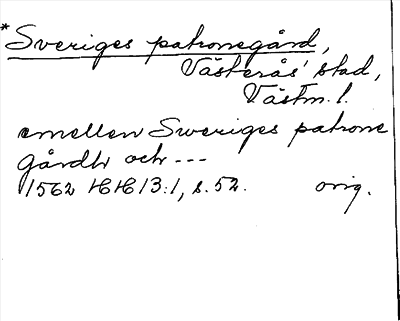 *Sveriges patronegård,
Västerås stad,
Västm. l.
emellen Sweriges patrone
gårdh och ---
1562 HH 13:1, s. 52. orig.